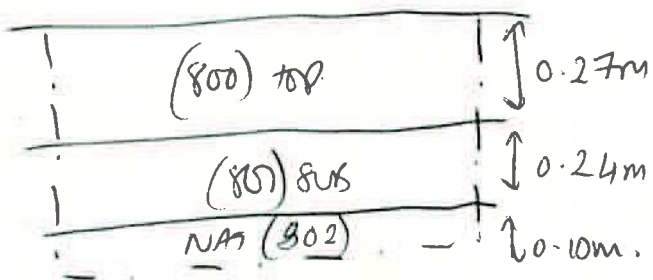 (800) top. 0.27m
(801) sub 0.24m
NAT (802) 0.10m.